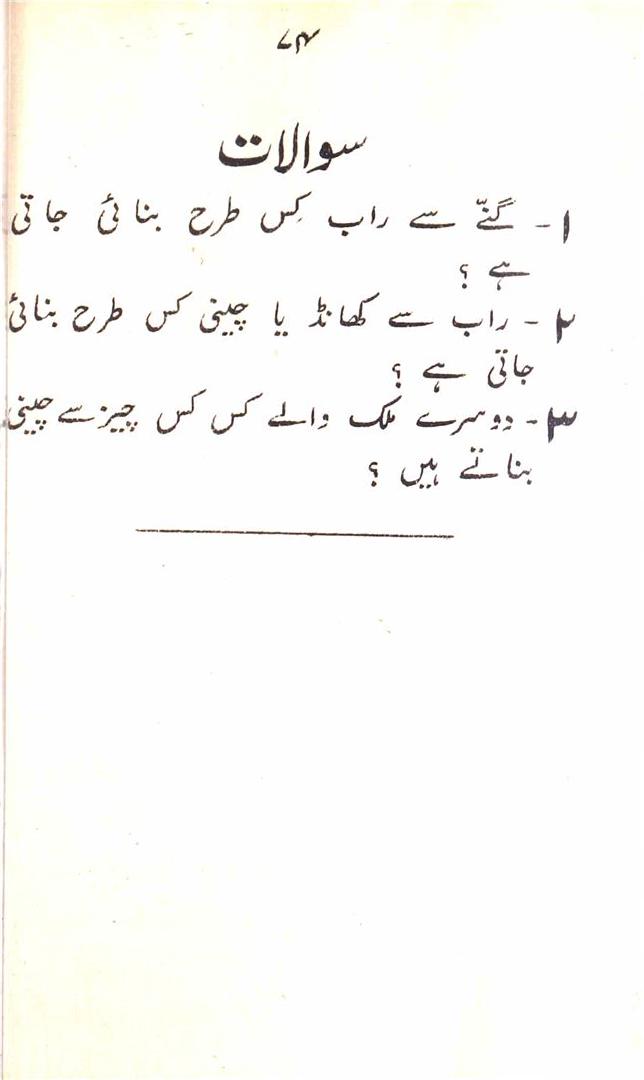 ۷۴
سوالات
۱- گنّے سے راب کِس طرح بنائی جاتی
ہے ؟
۲- راب سے کھانڈ یا چینی کس طرح بنائی
جاتی ہے ؟
۳- دوسرے ملک والے کس کس چیز سے چینی
بناتے ہیں ؟